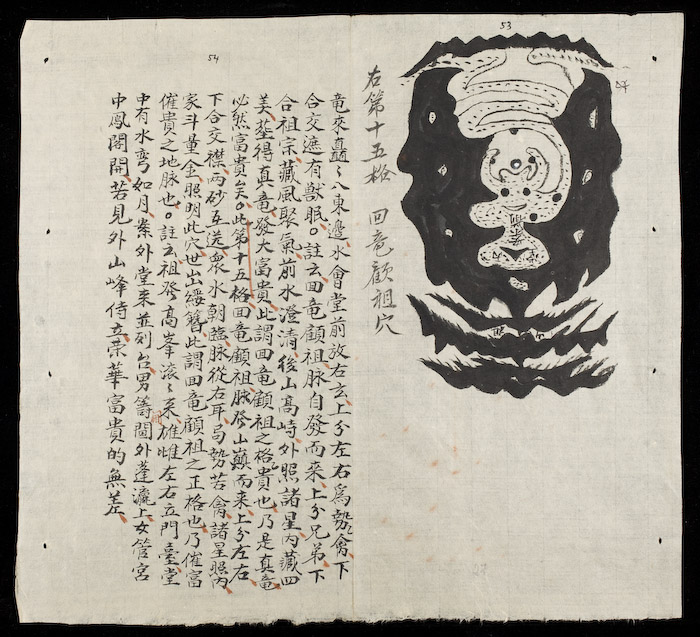 53
右第十五格 回竜顧祖穴
54
竜來矗〻八東邊水會堂前放右玄上分左右爲勢禽下
合交遮有獸眠。註云回竜顧祖脉自發而來上分兄弟下
合祖宗藏風聚氣前水澄清後山高峙外照諸星内藏四
美塟得真竜發大富貴此謂回竜顧祖之格貴也乃是真竜
必然富貴矣。此第十五格回竜顧祖脉發山巔而来上分左右
下合交襟兩砂互送衆水朝臨脉從右耳局勢若禽諸星照内
家斗量金照明此穴世出綬簪此謂回竜顧祖之正格也乃催富
催貴之地脉也。註云祖發高峯滚〻来雄雌左右立門臺堂
中有水彎如月案外堂来並列台男籌閫外蓬瀛上女管宮
中鳳閣開若見外山峰侍立荣華富貴的無差